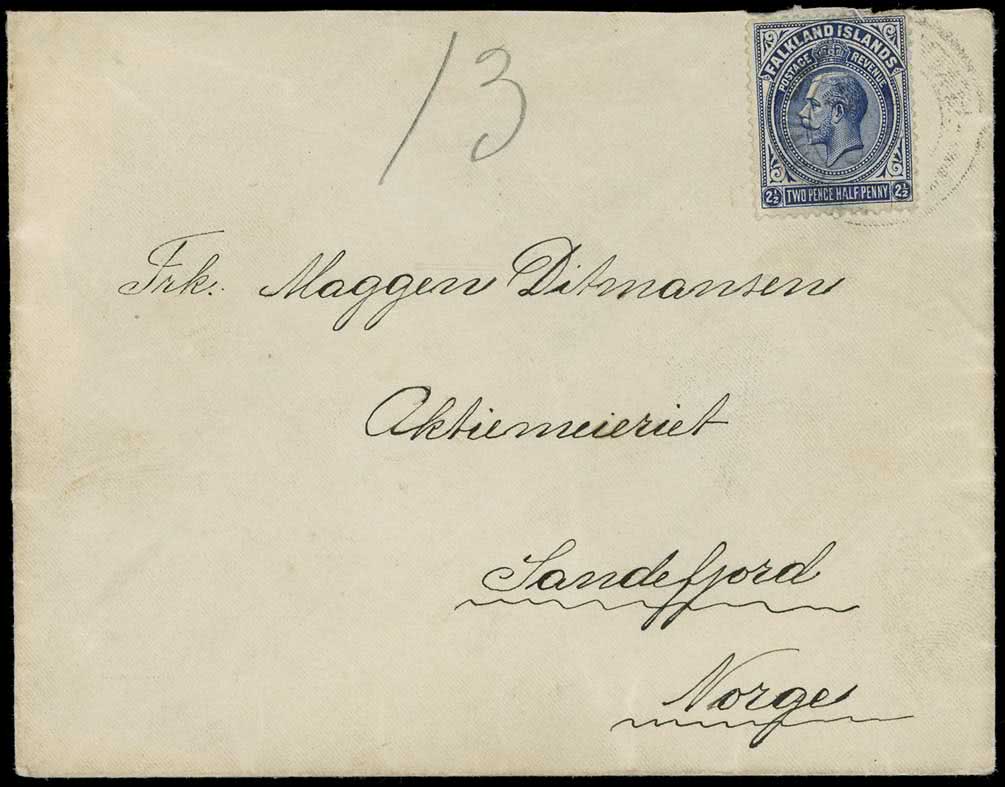 13
FALKLAND ISLANDS
POSTAGE REVENUE
2½ TWO PENCE HALFPENNY 2½
Frk. Maggen Ditmansen
Aktiemeieriet
Sandefjord
Norge